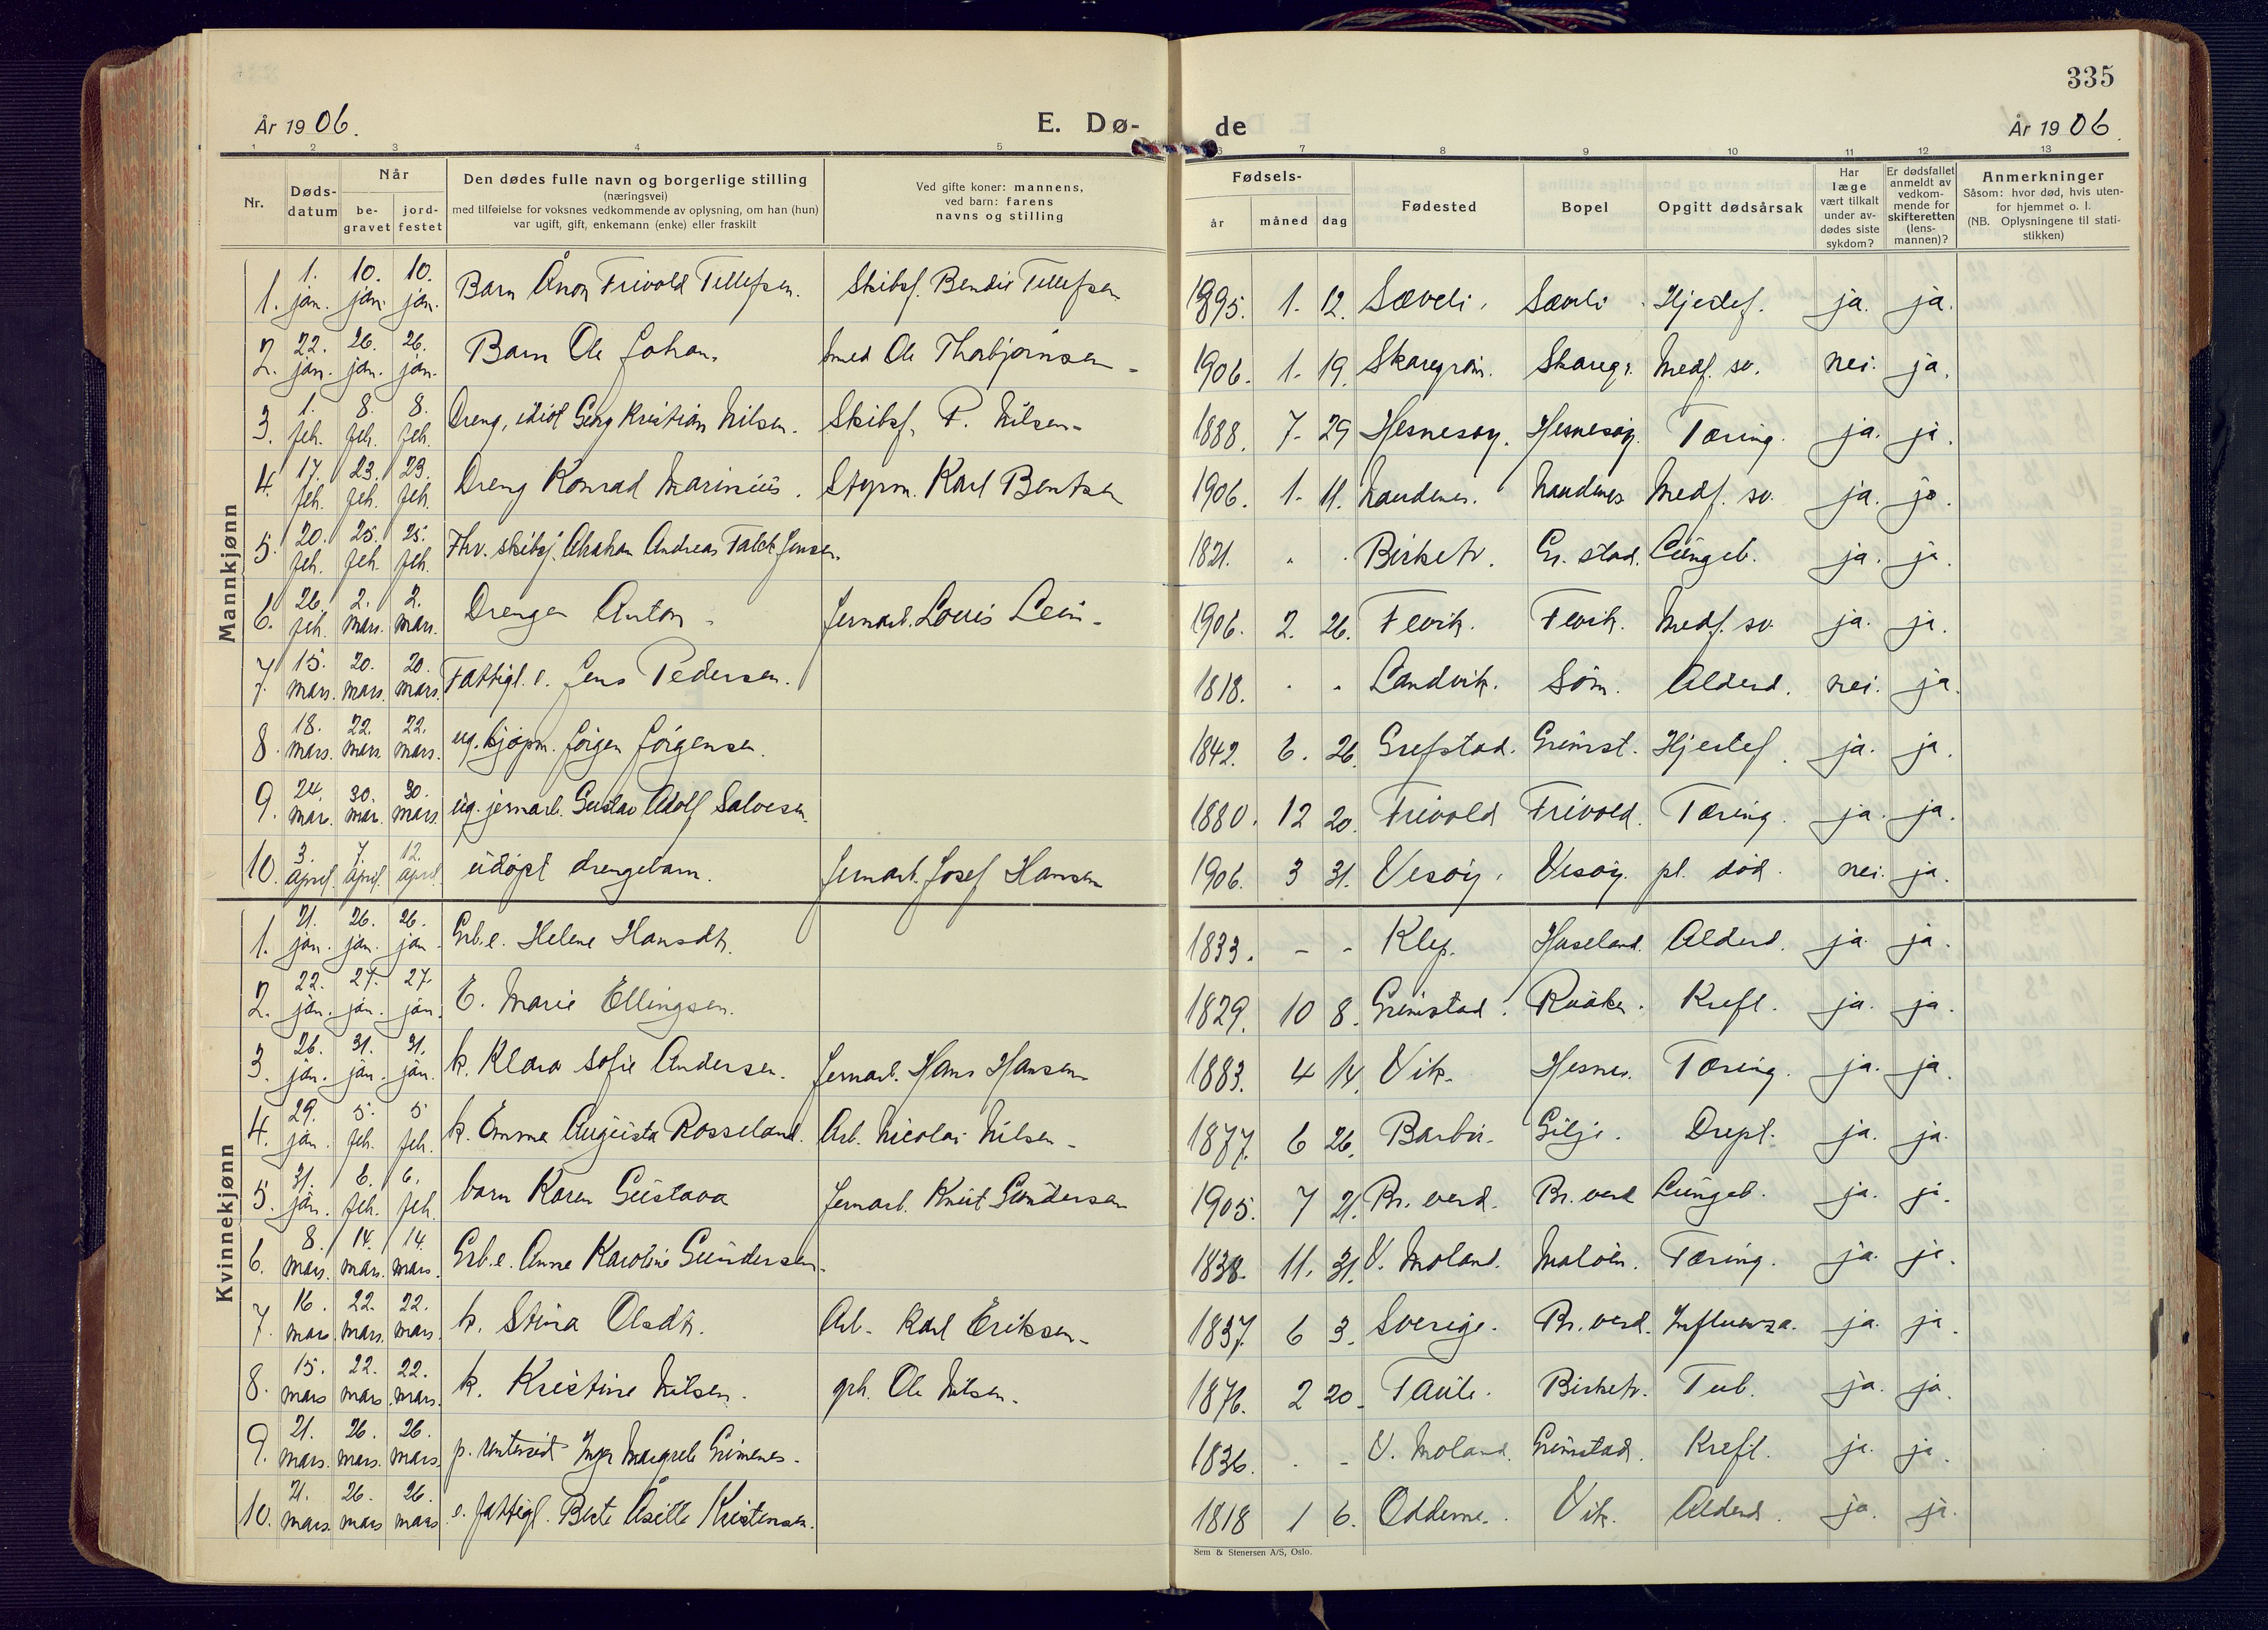 335
År 1906.
E. Dø-
de
År 1906.
1 2 3 4 5 6 7 8 9 10 11 12 13
Nr.
Døds-
datum
Når
be-
gravet
jord-
festet
Den dødes fulle navn og borgerlige stilling
(næringsvei)
med tilføielse for voksnes vedkommende av oplysning, om han (hun)
var ugift, gift, enkemann (enke) eller fraskilt
Ved gifte koner: mannens,
ved barn: farens
navns og stilling
Fødsels-
år måned dag
Fødested
Bopel
Opgitt dødsårsak
Har
læge
vært tilkalt
under av-
dødes siste
sykdom?
Er dødsfallet
anmeldt av
vedkom-
mende for
skifteretten
(lens-
mannen)?
Anmerkninger
Såsom: hvor død, hvis uten-
for hjemmet o. l.
(NB. Oplysningene til stati-
stikken)
Mannkjønn
1. 1. jan. 10. jan. 10. jan. Barn Anon Frivold Tellefsen. Skibsf. Bendix Tellefsen 1895. 1. 12. Sæveli. Sæveli Hjertef. ja. ja.
2. 22. jan. 26. jan. 26. jan. Barn Ole Johan. Smed Ole Thorbjørnsen 1906. 1. 19. Skaregrøm. Skaregr. Medf. sv. nei. ja.
3. 1. feb. 8. feb. 8. feb. Dreng, idiot Georg Kristian Nilsen. Skibsf. P. Nilsen 1888. 7. 29 Hesnesøy. Hesnesøy. Tæring. ja. ja.
4. 17. feb. 23. feb. 23. feb. Dreng Konrad Marinius. Styrm. Karl Bentsen 1906. 1. 11. Naudenes. Naudenes Medf. sv. ja. ja.
5. 20. feb. 25. feb. 25. feb. Fhv. skibsf. Abraham Andreas Falck Jensen. 1821. Birketv. Gr. stad. Lungeb. ja. ja.
6. 26. feb. 2. mars. 2. mars. Drengen Anton. Jernarb. Louis Lein 1906. 2. 26. Fevik. Fevik. Medf. sv. ja. ja.
7. 15. mars. 20. mars. 20. mars. Fattigl. e. Jens Pedersen. 1818. Landvik. Søm. Alderd. nei. ja.
8. 18. mars. 22. mars. 22. mars. ug. kjøpm. Jørgen Jörgensen. 1842. 6. 26. Grefstad. Grimst. Hjertef. ja. ja.
9. 24. mar. 30. mar. 30. mars. ug. jernarb. Gustav Adolf Salvesen. 1880. 12 20. Frivold Frivold. Tæring. ja. ja.
10. 3. April. 7. April. 12. April. udøpt drengebarn. Jernarb. Josef Hansen 1906. 3 31. Vesøy. Vesøy. pl. død. nei. ja.
Kvinnekjønn
1. 21. jan. 26. jan. 26. jan. Grb.e. Helene Hansdtr. 1833. - - Klep. Haseland. Alderd. ja. ja.
2. 22. jan. 27. jan. 27. jan. E. Marie Ellingsen. 1829. 10 8. Grimstad. Kreft. ja. ja.
3. 26. jan. 31. jan. 31. jan. k. Klara Sofie Andersen. Jernarb. Hans Hansen 1883. 4 14. Vik. Hesnes. Tæring. ja. ja.
4. 29. jan. 5. feb. 5 feb. k. Emma Augusta Rosseland. Arb. Nicolai Nilsen 1877. 6 26. Barbu. Gilje. Drept. ja. ja.
5. 31. jan. 6. feb. 6. feb. barn Karen Gustava Jernarb. Knut Gundersen 1905. 7 21. Br. verd. Br. verd Lungeb. ja. ja.
6. 8. mars. 14. mars. 14. mars. Grb.e. Anne Karoline Gundersen. 1838. 11. 31. V. Moland. Maløen. Tæring. ja. ja.
7. 16. mars. 22. mars. 22. mars. k. Stina Olsdtr. Arb. Karl Eriksen 1837. 6 3. Sverige. Br. verd. Influenza. ja. ja.
8. 15. mars 22. mars 22. mars. k. Kristine Nilsen. grb. Ole Nilsen. 1876. 2 20. Birketv. Tub. ja. ja.
9. 21. mars. 26. mars. 26. mars. p. Inger Margrete Grimenes. 1836. - V. Moland. Grimstad. Kreft. ja. ja.
10. 21. mars. 26. mars 26. mars e. fattigl. Berte Åsille Kristensen. 1818 1 6. Odderne. Vik. Alderd. ja. ja.
Sem & Stenersen A/S, Oslo.